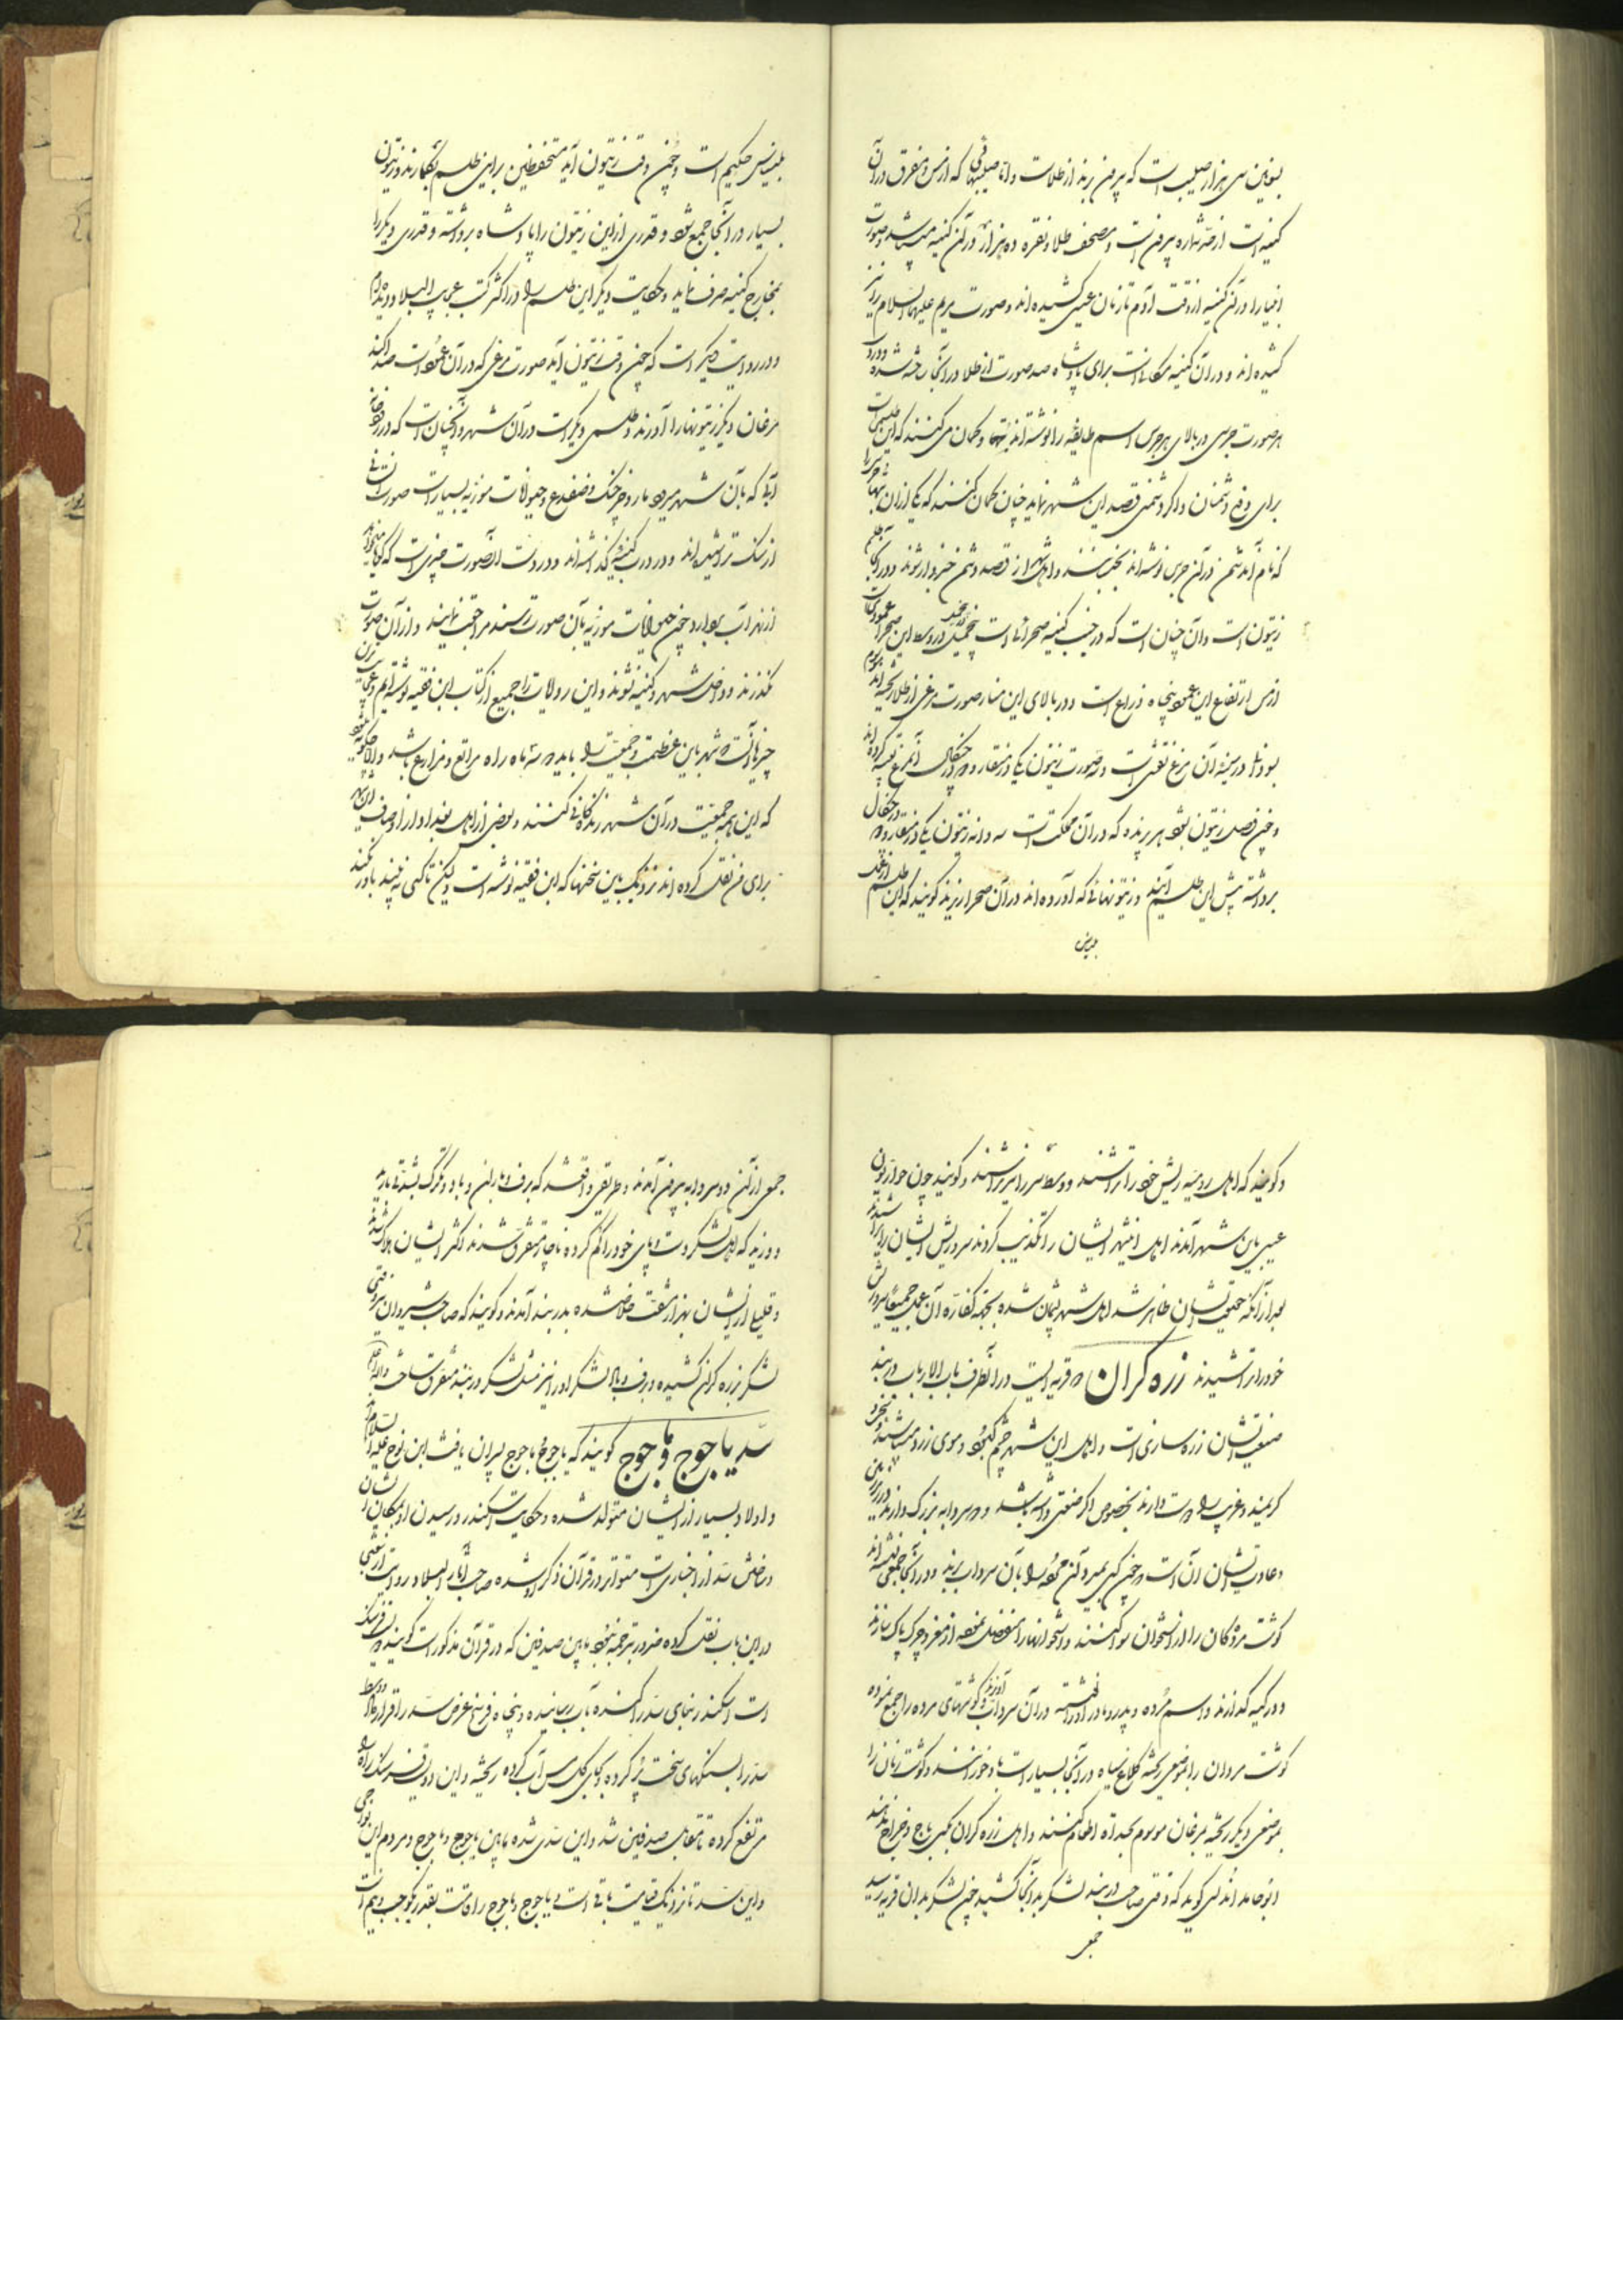 که بیرون برند از طلاست و اما صلیبهائی که از مس و متفرق در آن
کنیسه است از حد شماره بیرون است و مصحف طلا و نقره ده هزار در آن کنیسه میباشد و صورت
انبیا را در آن کنیسه از وقت آدم تا زمان عیسی کشیده اند و صورت مریم علیهما السلام را نیز
کشیده اند و در آن کنیسه مکانیست برای پادشاه صد صورت از طلا در آنجا ساخته شده و در
هر صورت جرسی در بالای هر جرس اسم طایفه را نوشته اند و گمان می کنند که این طلسم است
برای دفع دشمنان و اگر دشمنی قصد این شهر نماید چنان گمان کنند که یکی از آن بتها
که نام آن دشمن در آن جرس نوشته اند بجنبد و اهل شهر از قصد دشمن خبردار شوند و در آنجا طلسم
زیتون است و آن چنان است که در جنب کنیسه صحرائی است پنج میل در وسط این صحرا عمودی است
از مس ارتفاع این عمود پنجاه ذراع است و در بالای این منار صورت مرغی از طلا ریخته اند
در سینه آن مرغ نقشی است و سه صورت زیتون یکی در منقار و دو در چنگال آن مرغ تعبیه کرده اند
و چون فصل زیتون شود هر پرنده که در آن مملکت است سه دانه زیتون یکی در منقار و دو در چنگال
برداشته پیش این طلسم آیند و زیتونهائی که آورده اند در آن صحرا ریزند گویند که این طلسم از عمل
بلیناس حکیم است و چون وقت زیتون آید مستحفظین بر این طلسم بگمارند و زیتون
بسیار در آنجا جمع شود و قدری از این زیتون را پادشاه برداشته و قدری دیگر را
بمخارج کنیسه صرف نماید و حکایت دیگر این طلسم را در اکثر کتب عجایب البلاد دیده ام
و در روایت دیگر است که چون وقت زیتون آید صورت مرغی که در آن عمود است صدا کند
مرغان دیگر زیتونها را آورند و طلسمی دیگر است در آن شهر و آنچنان است که در رودخانه
آبی که بآن شهر میرود مار و خرچنگ و ضفدع و حیوانات موذیه بسیار است صورت انسانی
از سنگ تراشیده اند و در درب کنیسه گذاشته اند و در دست آن صورت چیزی است که گویا میخواهد
از نهر آب بردارد و چون حیوانات موذیه بآن صورت رسند مراجعت نمایند و از آن صورت
نگذرند و داخل شهر و کنیسه نشوند و این روایات را جمیع از کتاب ابن فقیه نوشته ایم
چیزها آنست که شهر باین عظمت و جمعیت را باید دو سه ماه راه مراتع و مزارع باشد
که این همه جمعیت در آن شهر زندگانی کنند و بعضی از اهل بغداد از اوصاف این شهر
برای من نقل کرده اند نزدیک باین سخنها که ابن فقیه نوشته است ولیکن تا کسی نه بیند باور نکند
و گویند که اهل رومیه ریش خود را تراشند و وسط سر را نیز تراشند و گویند چون حواریون
عیسی باین شهر آمدند اهل این شهر ایشان را تکذیب کردند سر و ریش ایشان را تراشیدند
بعد از آنکه حقیقت ایشان ظاهر شد اهل شهر پشیمان شده بجهة کفاره آن عمل جمیعا سر و ریش
خود را تراشیدند زره کران دو قریه ایست در آنطرف باب الابواب دربند
صنعت ایشان زره سازی است و اهل این شهر چشم کبود و موی زرد میباشند
کریمند و غریب را دوست دارند بخصوص اگر صنعتی داشته باشد و دو سردابه بزرگ دارند در زیر زمین
و عادت ایشان آن است که چون کسی بمیرد آن مرده را بآن سرداب برند و در آنجا جمعی نشسته اند
گوشت مردگان را از استخوان سوا کنند و استخوانها را منفصل نموده از مغز و چرک پاک سازند
و در کیسه گذارند و اسم مرده و پدر و مادر او را نوشته در آن سرداب آویزند و گوشتهای مرده را جمع نموده
گوشت مردان را بموضعی ریخته کلاغ سیاه در آنجا بسیار است تا بخورانند و گوشت زنان را
بموضعی دیگر ریخته مرغان موسوم بحداه اطعام کنند و اهل زره کران بکسی باج و خراج ندهند
ابو حامد اندلسی گوید که وقتی صاحب دربند لشکر بدانجا کشید چون لشکر بدان قریه رسید
جمعی
جمعی از آن دو سردابه بیرون آمدند و طریقی واقع شد که برف و باران و باد و تگرگ بشدتی بارید
و وزید که اهل لشکر دست و پای خود را گم کرده ناچار متفرق شدند اکثر ایشان هلاک شدند
و قلیلی از ایشان بهزار مشقت خلاص شده بدربند آمدند و گویند که صاحب شیروان نیز وقتی
لشکر بزره کران کشیده و برف و باد لشکر او را نیز مثل لشکر دربند متفرق ساخت والله اعلم
سد یاجوج و ماجوج گویند که یاجوج و ماجوج پسران یافث ابن نوح علیه السلام اند
و اولاد بسیار از ایشان متولد شده و حکایت اسکندر و رسیدن او بمکان ایشان
و ساختن سد از اخباری است متواتر و در قرآن ذکر او شده صاحب آثار البلاد روایت از شعبی
در این باب نقل کرده ضرور ترجمه نبود مابین صدفین که در قرآن مذکور است گویند دو فرسنگ
است اسکندر بنای سد را کنده بآب رسانیده و پنجاه فرسخ عرض سد را قرار داد
سد را بسنگهای سخت پر کرده و بجای گل مس آب کرده ریخته و این دو فرسنگ راه را
مرتفع کرده تا مقابل صدفین شد و این سدی شده مابین یاجوج و ماجوج و مردم این نواحی
و این سد تا نزدیک قیامت باقی است یاجوج و ماجوج را قامت بقدر یکوجب و نیم است